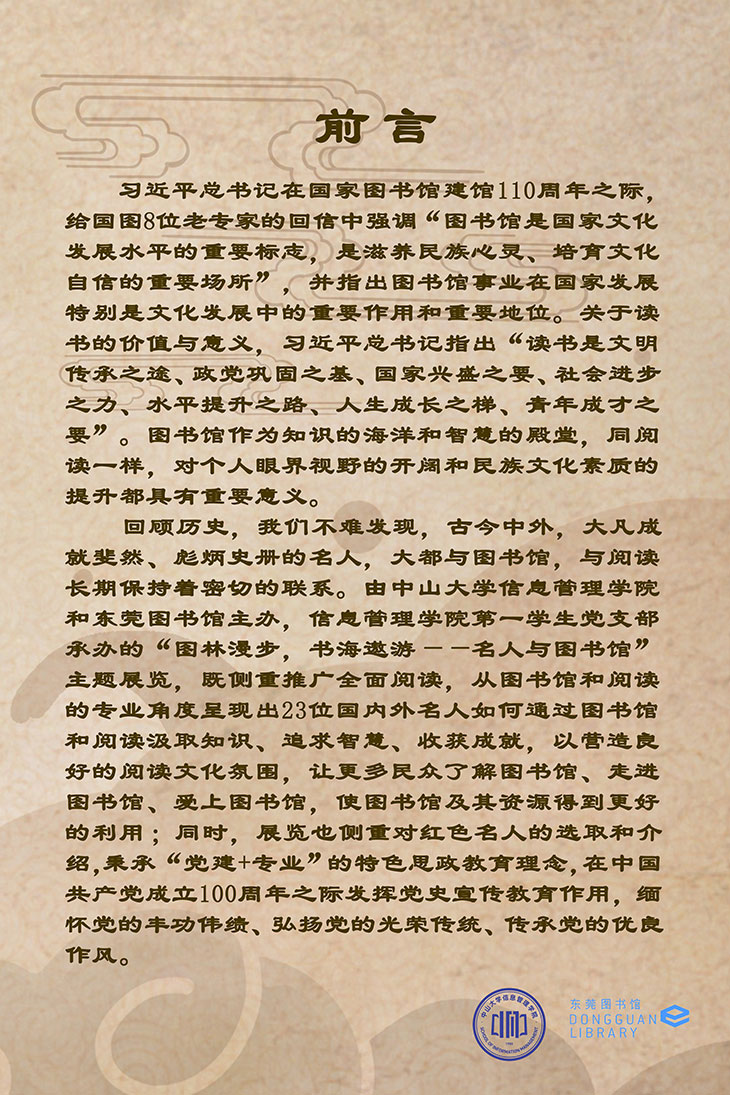 前言
习近平总书记在国家图书馆建馆110周年之际，
给国图8位老专家的回信中强调“图书馆是国家文化
发展水平的重要标志，是滋养民族心灵、培育文化
自信的重要场所”，并指出图书馆事业在国家发展
特别是文化发展中的重要作用和重要地位。关于读
书的价值与意义，习近平总书记指出“读书是文明
传承之途、政党巩固之基、国家兴盛之要、社会进步
之力、水平提升之路、人生成长之梯、青年成才之
要”。图书馆作为知识的海洋和智慧的殿堂，同阅
读一样，对个人眼界视野的开阔和民族文化素质的
提升都具有重要意义。
回顾历史，我们不难发现，古今中外，大凡成
就斐然、彪炳史册的名人，大都与图书馆，与阅读
长期保持着密切的联系。由中山大学信息管理学院
和东莞图书馆主办，信息管理学院第一学生党支部
承办的“图林漫步，书海遨游－－名人与图书馆”
主题展览，既侧重推广全面阅读，从图书馆和阅读
的专业角度呈现出23位国内外名人如何通过图书馆
和阅读汲取知识、追求智慧、收获成就，以营造良
好的阅读文化氛围，让更多民众了解图书馆、走进
图书馆、爱上图书馆，使图书馆及其资源得到更好
的利用；同时，展览也侧重对红色名人的选取和介
绍,秉承“党建+专业”的特色思政教育理念,在中国
共产党成立100周年之际发挥党史宣传教育作用，缅
怀党的丰功伟绩、弘扬党的光荣传统、传承党的优良
作风。
中山大学信息管理学院
SCHOOL OF INFORMATION MANAGEMENT
1980
东莞图书馆
DONGGUAN
LIBRARY